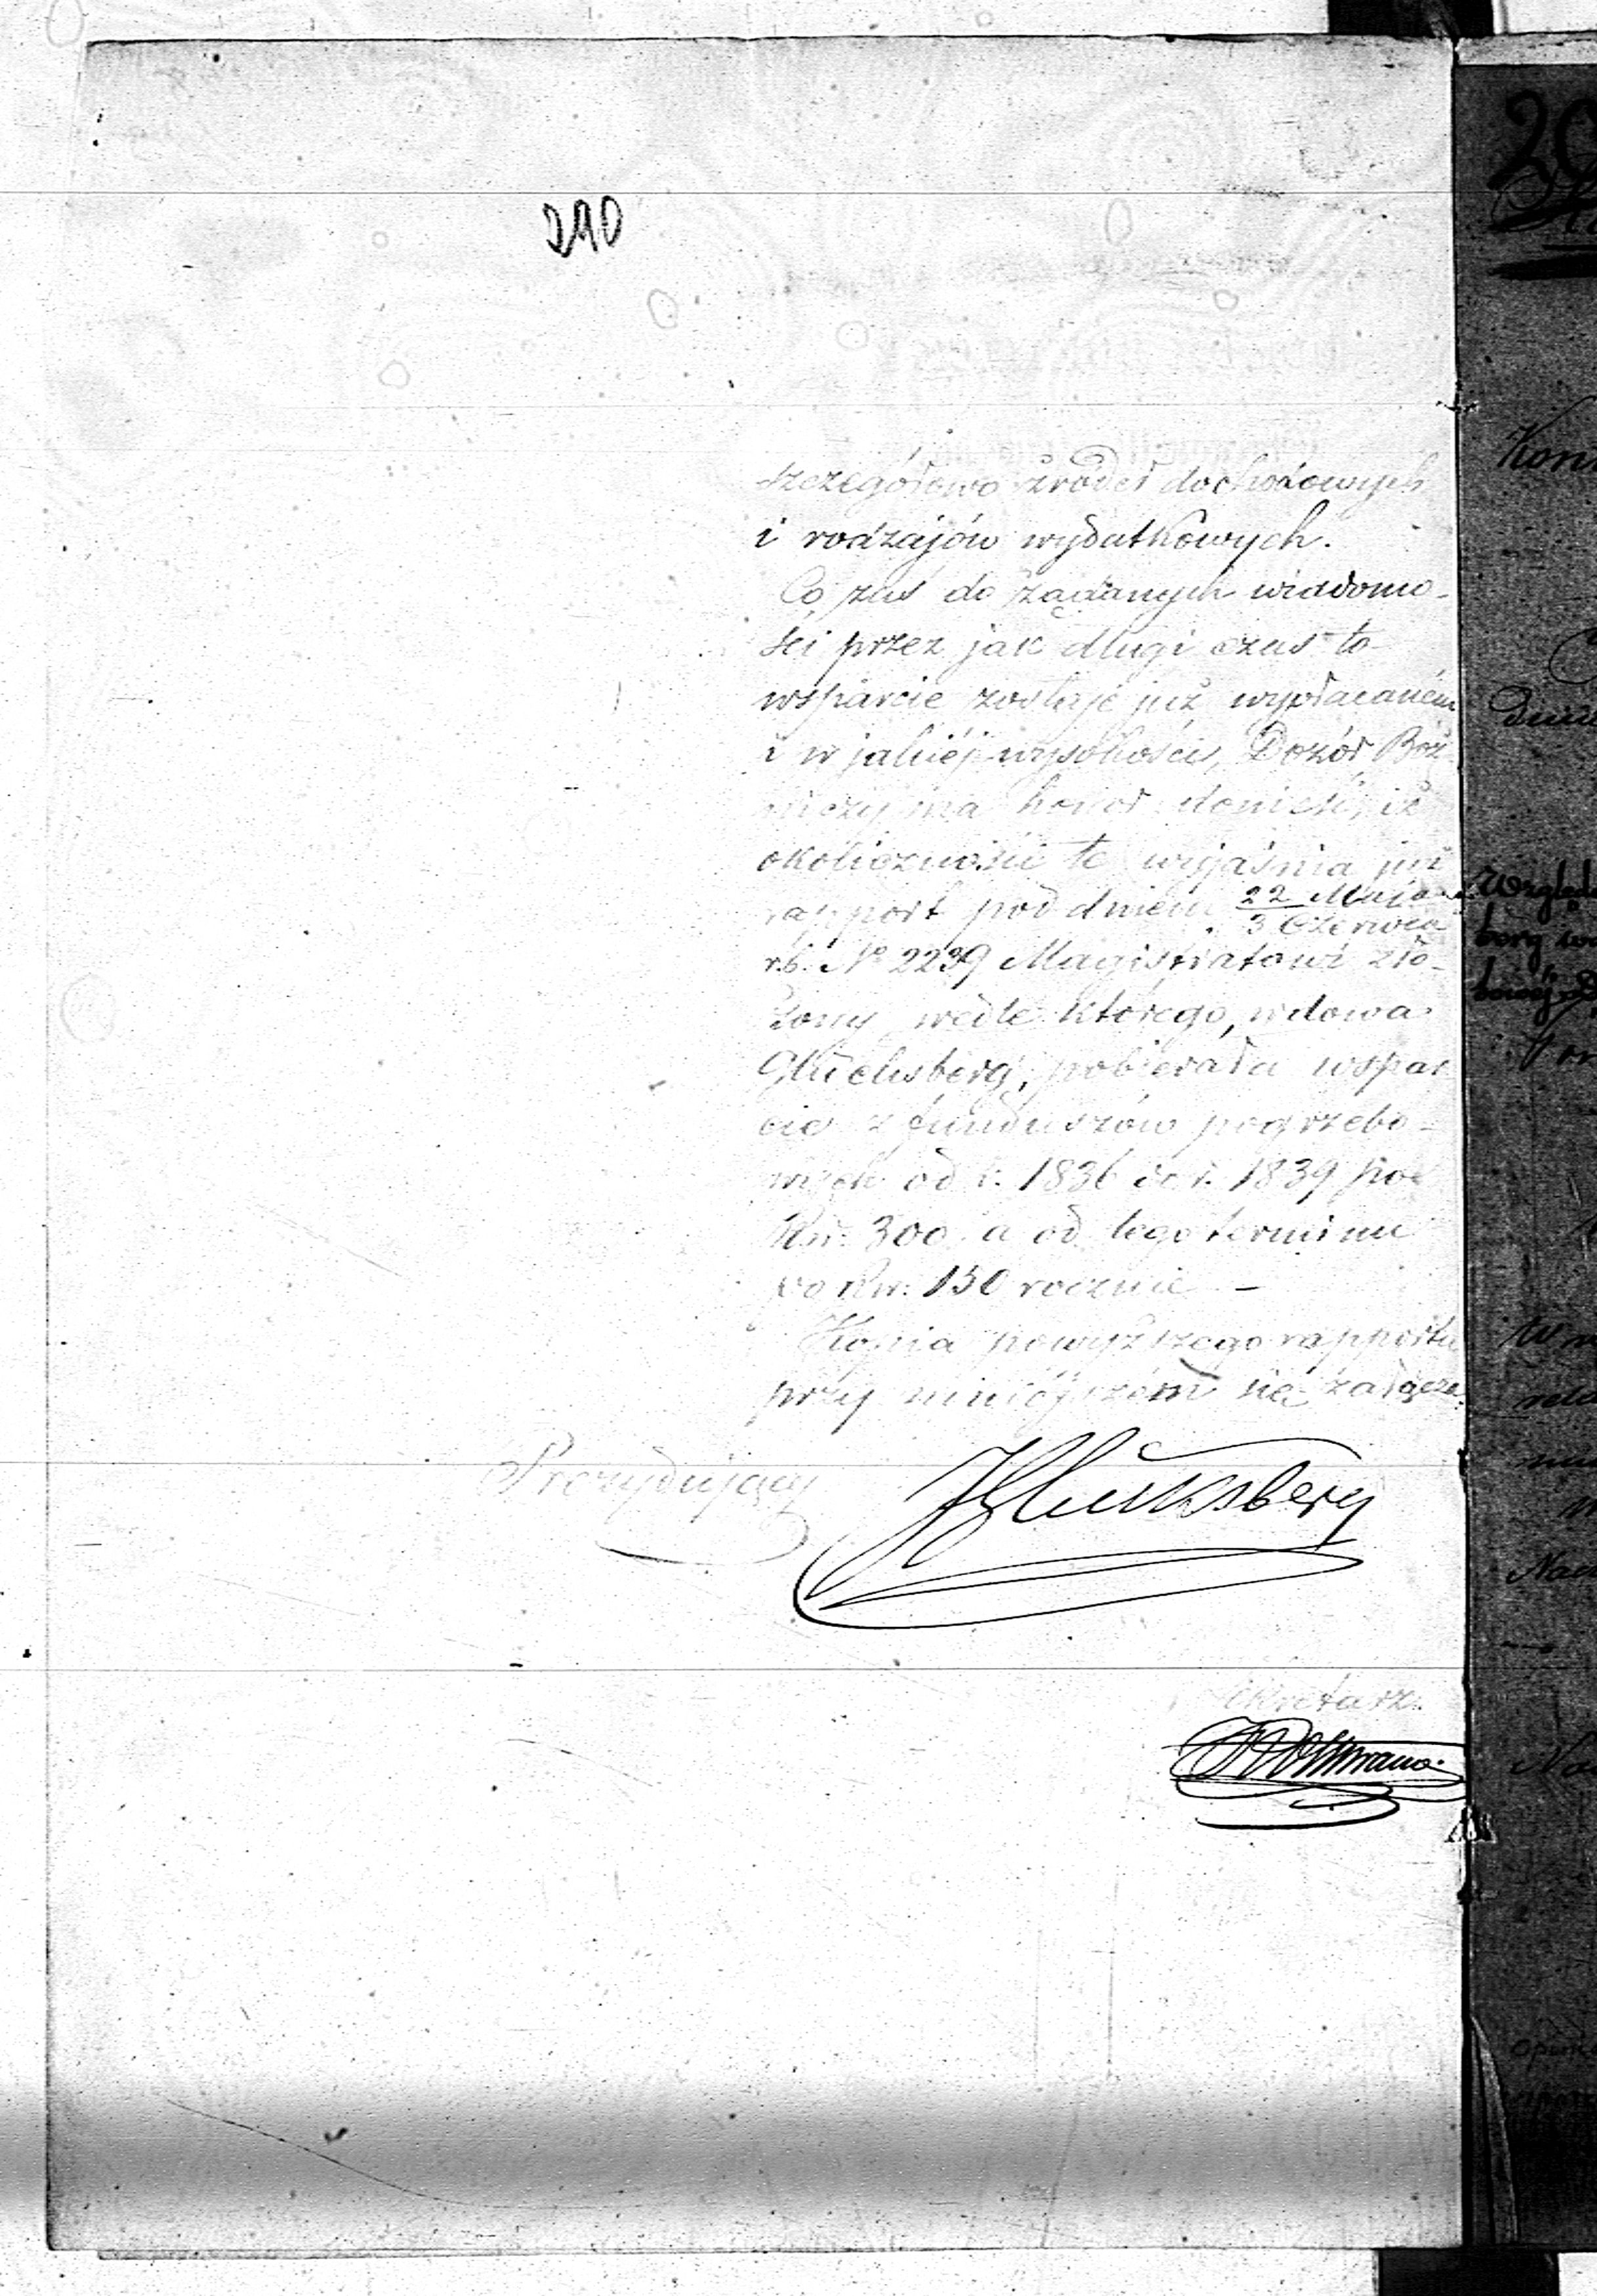 210
szczegółowo źródeł dochodowych
i rodzajów wydatkowych.
Co zaś do żądanych wiadomo-
ści przez jak długi czas to
wsparcie zostaje już wypłacaném
i w jakiéj wysokości, Dozór Boż
niczy ma honor donieść, iż
okoliczności te wyjaśnia już
rapport pod dniem 22 Maja / 3 Czerwca
r.b. No 2239 Magistratowi zło-
żony, wedle którego, wdowa
Glücksberg, pobierała wspar
cie z funduszów pogrzebo-
wych od r. 1836 do r. 1839 po
Rsr. 300 a od tego terminu
po Rsr. 150 rocznie -
Kopia powyższego rapportu
przy niniéjszém się załącza.
Prezydujący
Glucksberg
Sekretarz